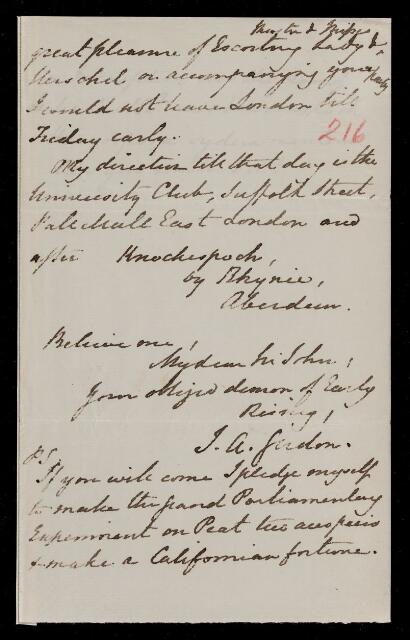 Master & Miss
great pleasure of Escorting Lady &
Herschel or accompanying your party
I would not leave London till
Friday early.
216
My direction till that day is the
University Club, Suffolk Street,
Pall Mall East London and
after Knockespock,
by Rhynie,
Aberdeen.
Believe me,
My dear Sir John,
Your obliged demon of Early
Rising,
J. A. Gordon.
P.S.
If you will come I pledge myself
to make the grand Parliamentary
Experiment on Peat
& make a Californian fortune.